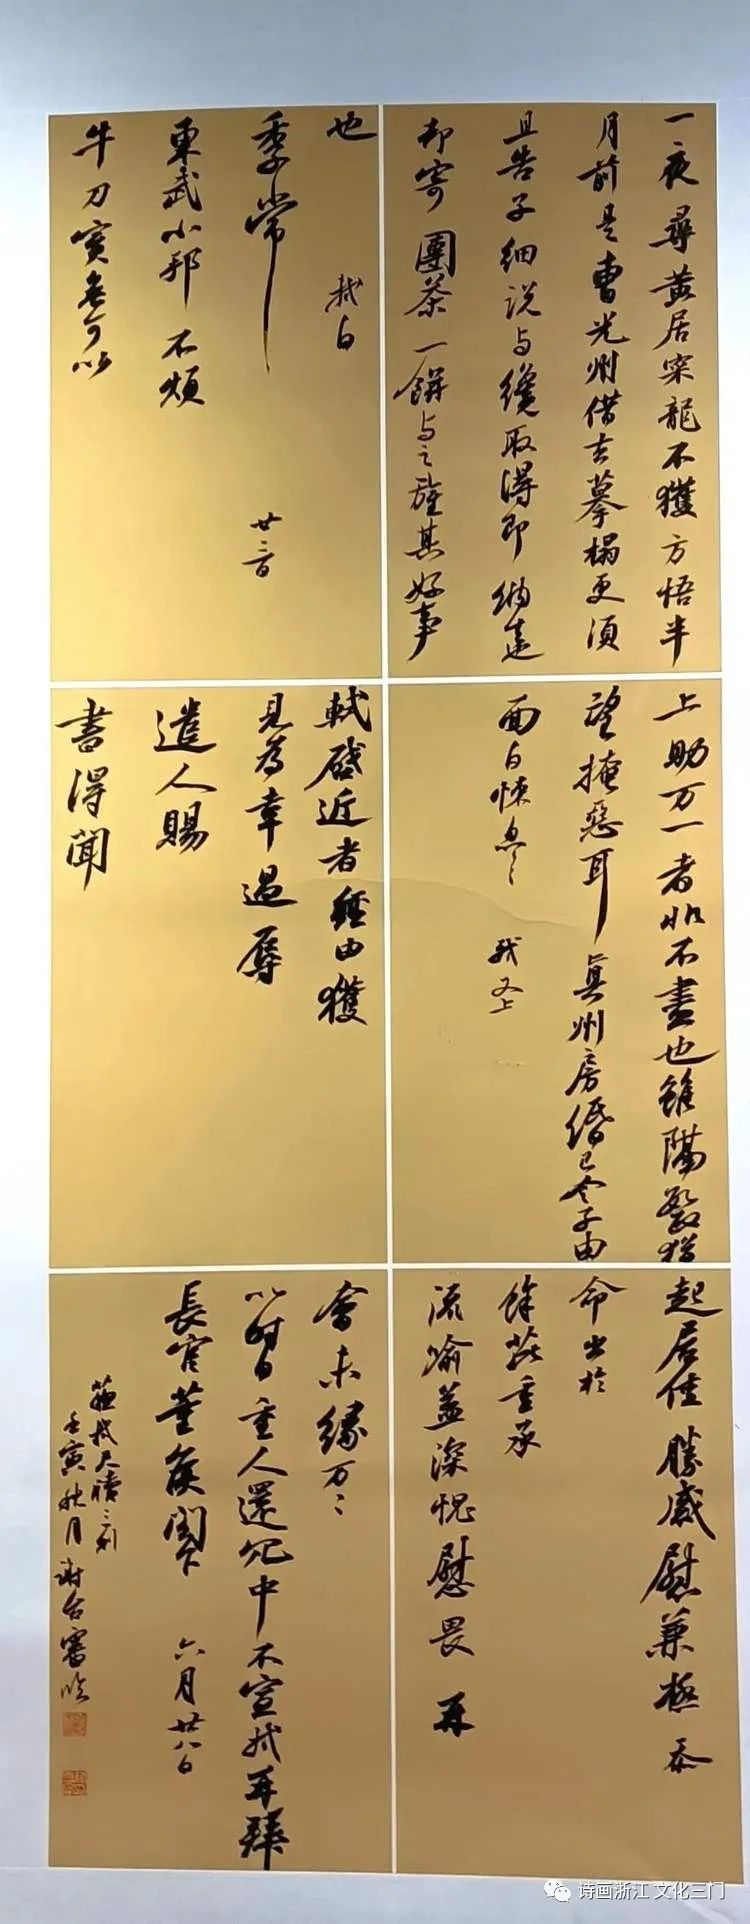 一夜尋黃居寀龍不獲方悟半
月前是曹光州借去摹榻更須
且告子細說與纔取得即納去
却寄團茶一餅與之旌其好事
也
軾白
季常
廿三日
東武小邦不煩
牛刀實無可以
上助万一者非不盡也雖隔數
望掩惡耳真州房緡已令子由
面白悚息
軾又上
軾啓近者經由獲
見為幸過辱
遣人賜
書得聞
起居佳勝感慰兼極忝
命出於
餘芘重承
流喻益深愧慰畏再
會未緣万万
以時自重人還冗中不宣軾再拜
長官董侯閣下
六月廿八日
蘇軾尺牘三則
壬寅秋月謝合審臨
诗画浙江 文化三门